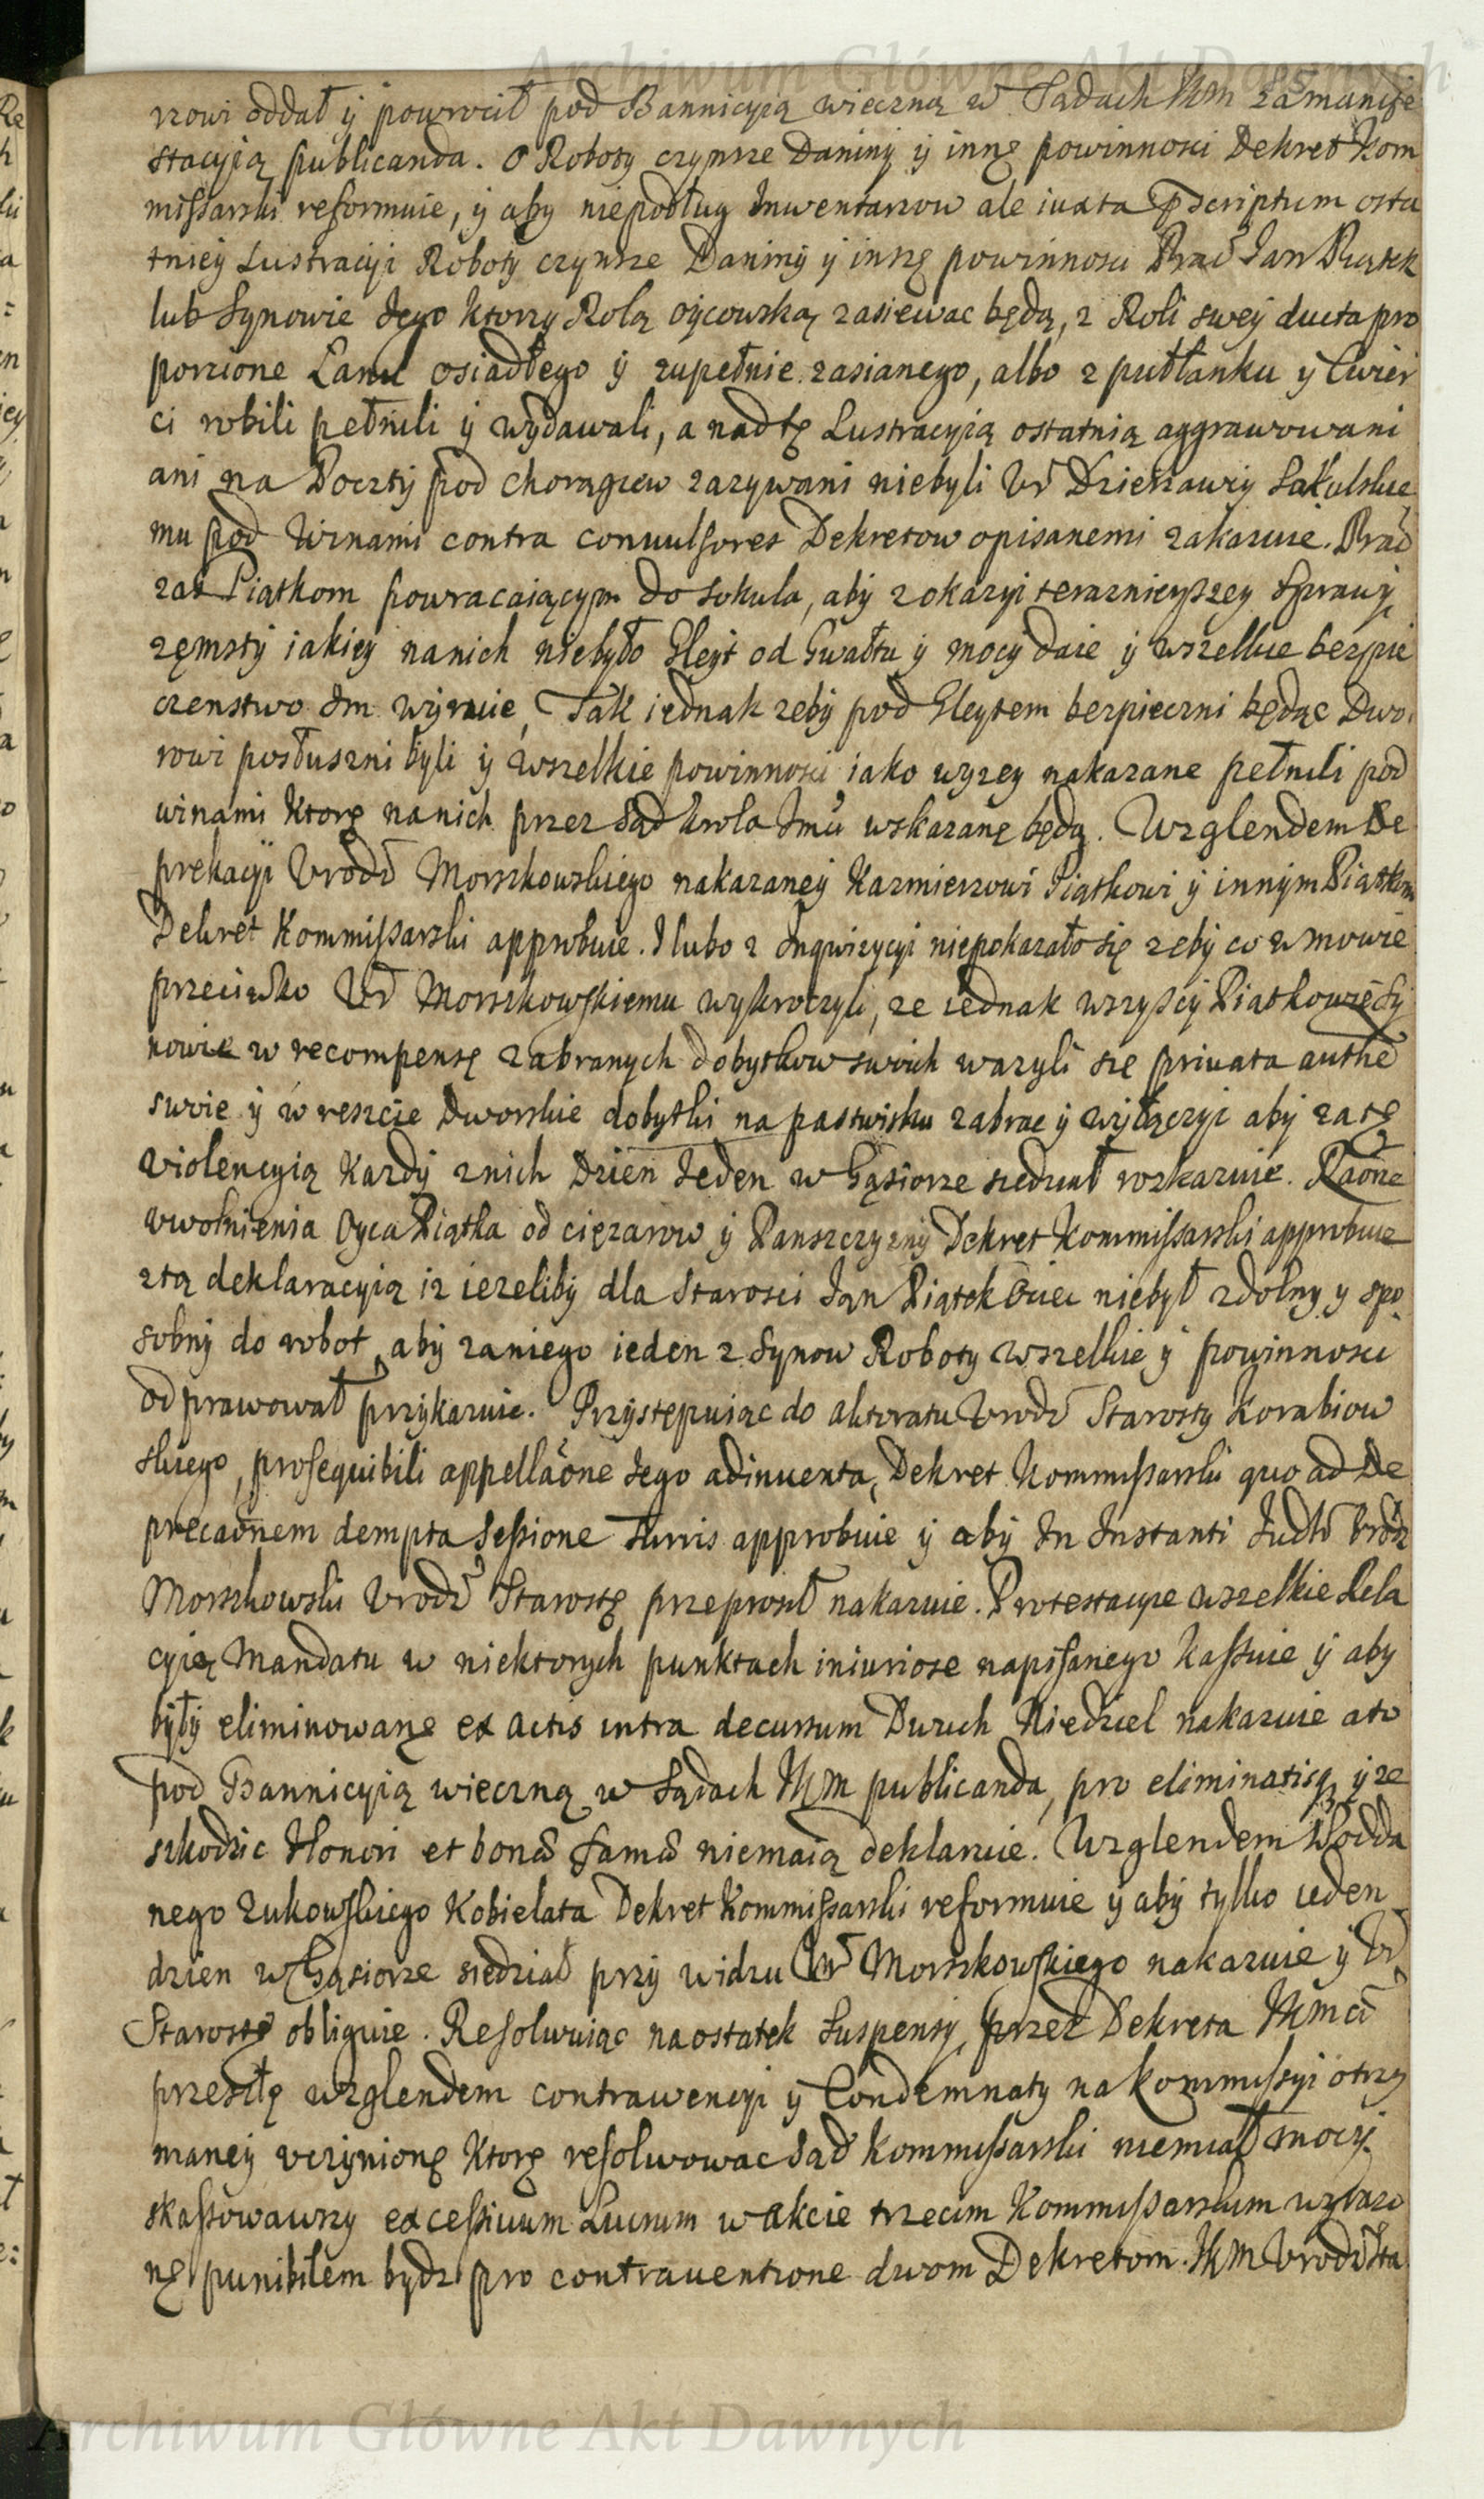 Archiwum Główne Akt Dawnych
rzowi oddał ÿ powrocił pod Bannicyią wieczną w Sądach JKM za manife
stacyią publicanda. O Roboty czynsze Daniny ÿ innę powinnosci Dekret Kom
mißarski reformuie, ÿ aby niepodług Inwentarzow ale iuxta prescriptum osta
tnieÿ Lustracyi Roboty czynsze Daninÿ ÿ inszę powinnosci Prac Jan Piątek
lub Synowie Jego ktorzy Rolą oÿcowską zasiewac będą, z Roli sweÿ ducta pro
porzione Łanu osiadłego ÿ zupełnie zasianego, albo z pułłanku ÿ Cwier
ci robili pełnili ÿ wÿdawali, a nad tę Lustracyią ostatnią aggrawowani
ani na Poczty pod chorągiew zazywani niebyli Ur Dzierzawcy Sokulskie
mu pod Winami contra convulsores Dekretow opisanemi zakazuie. Prac
zas Piątkom powracaiącym do Sokula, aby z okazyi terazniejszey Sprawÿ
zęmstÿ iakieÿ nanich niebyło Gleyt od Gwałtu ÿ mocÿ daie ÿ wszelkie bezpie
czenstwo Im wÿmuie, Tak iednak zebÿ pod Gleytem bezpieczni będąc Dwo
rowi posłuszni byli ÿ wszelkie powinnosci iako wyzey nakazane pełnili pod
winami ktorę nanich przez Sąd Krola Jmci wskazanę będą. Wzglendem De
prekacÿi Urodz Morszkowskiego nakazaneÿ Kazmierzowi Piątkowi ÿ innÿm Piątkom
Dekret Kommißarski approbuie. I lubo z Inqwizycyi niepokazało się zebÿ co w mowie
przeciwko Ur Morszkowskiemu wykroczyli, ze iednak wszyscÿ Piątkowie Sy
nowie w recompensę zabranych dobytkow swoich wazyli się privata authe
swoie ÿ w reszcie Dworskie dobytki na pastwisku zabrac ÿ wÿłączyi abÿ za tę
violencyią Kazdÿ z nich Dzien Jeden w Gąsiorze siedział rozkazuie. Raone
uwolnienia Oyca Piątka od ciężarow ÿ Panszczyznÿ Dekret Kommißarski approbuie
z tą deklaracyią iz iezelibÿ dla Starosci Jan Piątek Ociec niebył zdolny y spo
sobnÿ do robot, abÿ zaniego ieden z Synow Roboty wszelkie ÿ powinnosci
odprawował przÿkazuie. Przystępuiąc do aktoratu Urodz Starosty Korabiow
skiego, prosequibili appellaone Jego adinventa, Dekret Kommißarski quo ad De
precaonem dempta Seßione Turris approbuie ÿ abÿ In Instanti Judth Urodz
Morszkowski Urodz Starostę przeprosił nakazuie. Protestacye wszelkie Rela
cyię Mandatu w niektorych punktach iniuriose napisanego kaßuie ÿ aby
bÿłÿ eliminowanę ex actis intra decursum Dwuch Niedziel nakazuie a to
pod Bannicyią wieczną w Sądach JKM publicanda, pro eliminatisq ÿ ze
szkodzic Honori et bonæ famæ niemaią deklaruie. Wzglendem Podda
nego Zukowskiego Kobielata Dekret Kommißarski reformuie ÿ abÿ tylko ieden
dzien w Gąsiorze siedział przÿ widzu Ur Morszkowskiego nakazuie ÿ Ur
Starostę obliguie. Resolwuiąc naostatek Suspensÿ, przez Dekreta JKMci
przeszłę wzglendem contrawencyi ÿ Condemnaty na kommissyi otrzy
maneÿ vczÿnionę ktorę resolwowac Sąd Kommißarski niemiał mocÿ.
skaßowawszy exceßivum Lucrum w akcie trzecim Kommißarskim wyrazo
nę punibilem bydz pro contraventione dwom Dekretom JKM Urodz Sta
Archiwum Główne Akt Dawnych